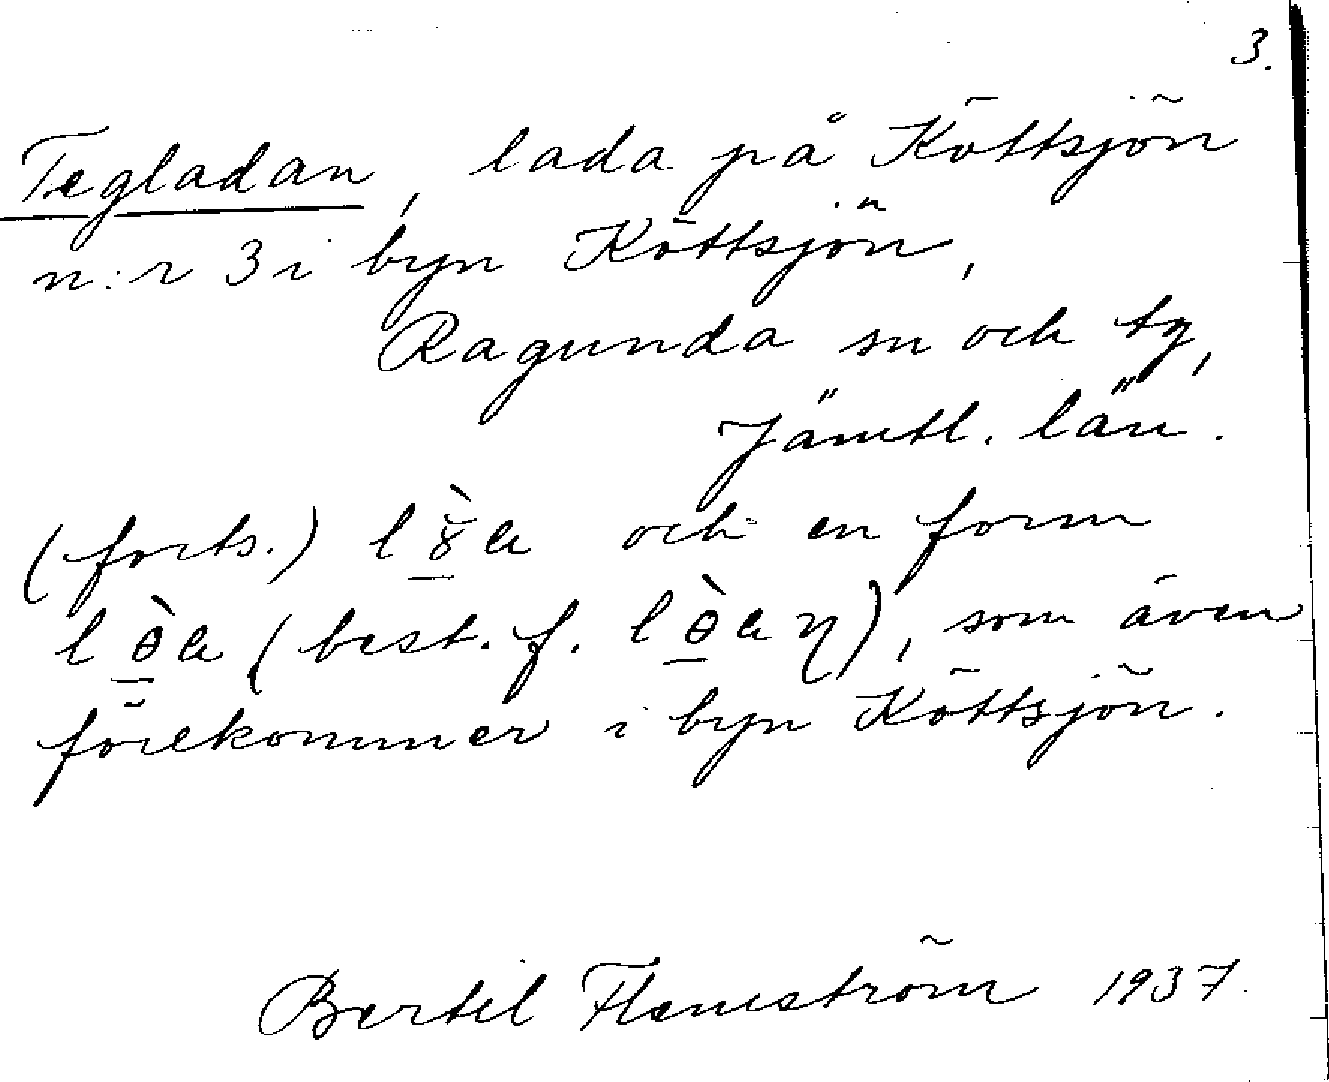 3.
Tegladan, lada på Köttsjön
n:r 3 i byn Köttsjön,
Ragunda sn och tg,
Jämtl. län.
(forts.) l och en form
lɵ̀a (best. f. lɵ̀aη), som även
förekommer i byn Köttsjön.
Bertil Flemström 1937.